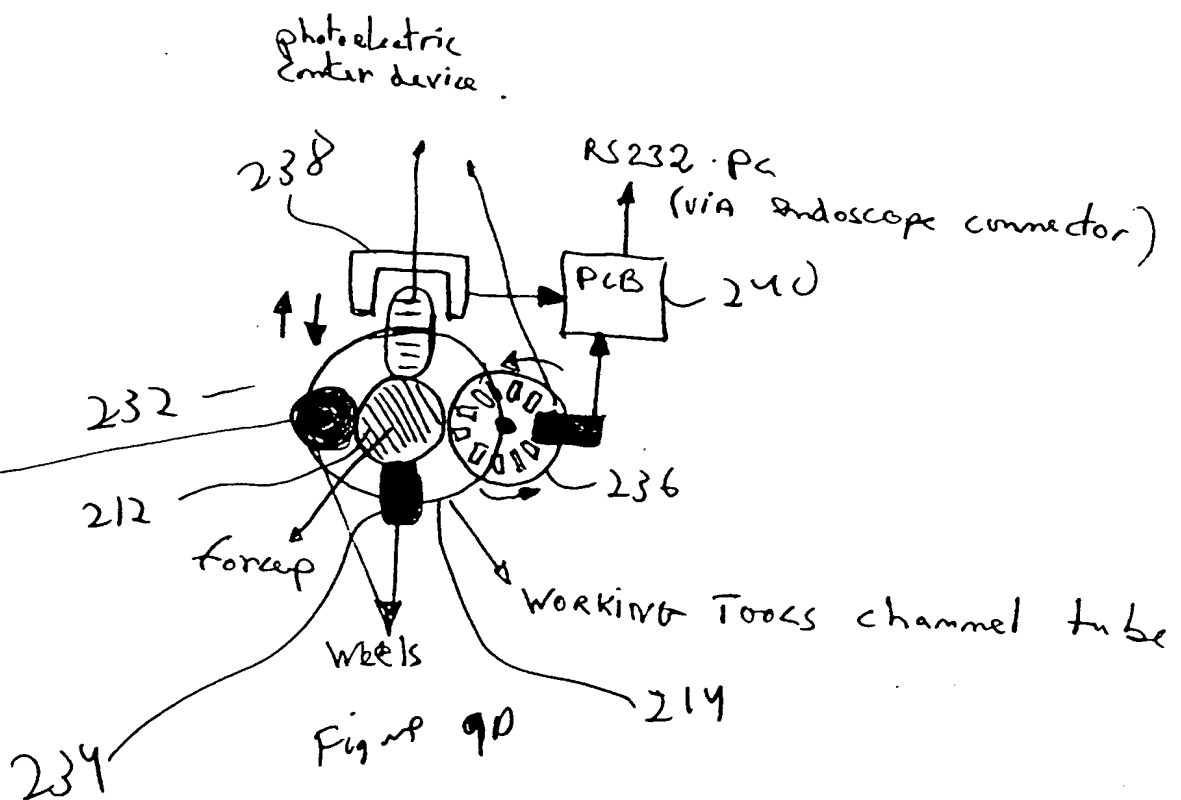 photoelectric
Conter device.
238
RS232. PC
(via endoscope connector)
PCB
240
232
236
212
forcep
WORKING TOOLS channel tube
Weels
214
Figure 9D
234